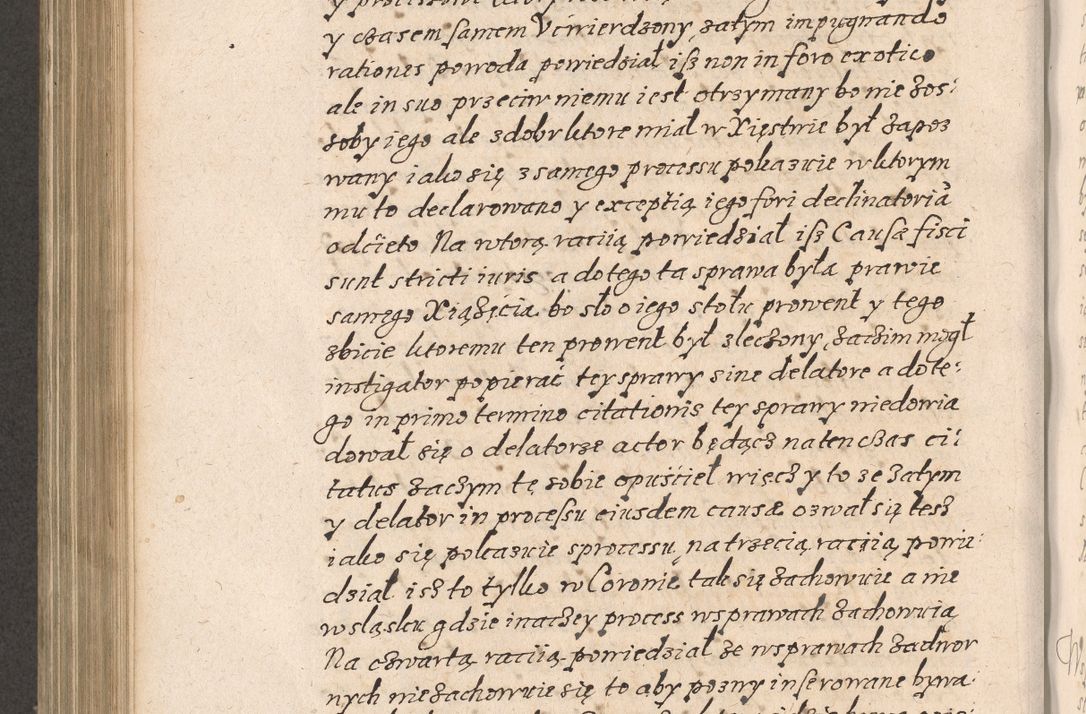 y czasem samem Vćwierdzony, zatym impugnando
rationes powoda powiedział, isz non in foro exotico
ale in suo przeciw niemu iest otrzymany bo nie zos:
soby iego ale zdobr ktore miał w Xięstwie był zapoz
wany iako się z samego processu pokazuie w ktorym
mu to declarowano y exceptią iego fori declinatoria
odcięto Na wtorą ratiią powiedział isz Causæ fisci
sunt stricti iuris a dotego ta sprawa była prawie
samego Xiążęcia bo sło o iego stołu prowent y tego
zbicie ktoremu ten prowent był zleczony, zaczim mogł
instigator popierać tey sprawy sine delatore a dote:
go in primo termino citationis tey sprawy niedowia
dował się o delatorze actor będącz natenczas ci:
tatus zaczym tę sobie opuścieł więcz y to ze zatym
y delator in processu eiusdem causæ ozwał się tesz
iako się pokazuie sprocessu, na trzecią ratiią powie:
dział isz to tylko w Coronie tak się zachowuie a nie
w sląsku gdzie inaczey process wsprawach zachowuią
Na czwartą ratiią powiedział ze wsprawach zadwor
nych niezachowuie się to aby pozwy inserowane bywa